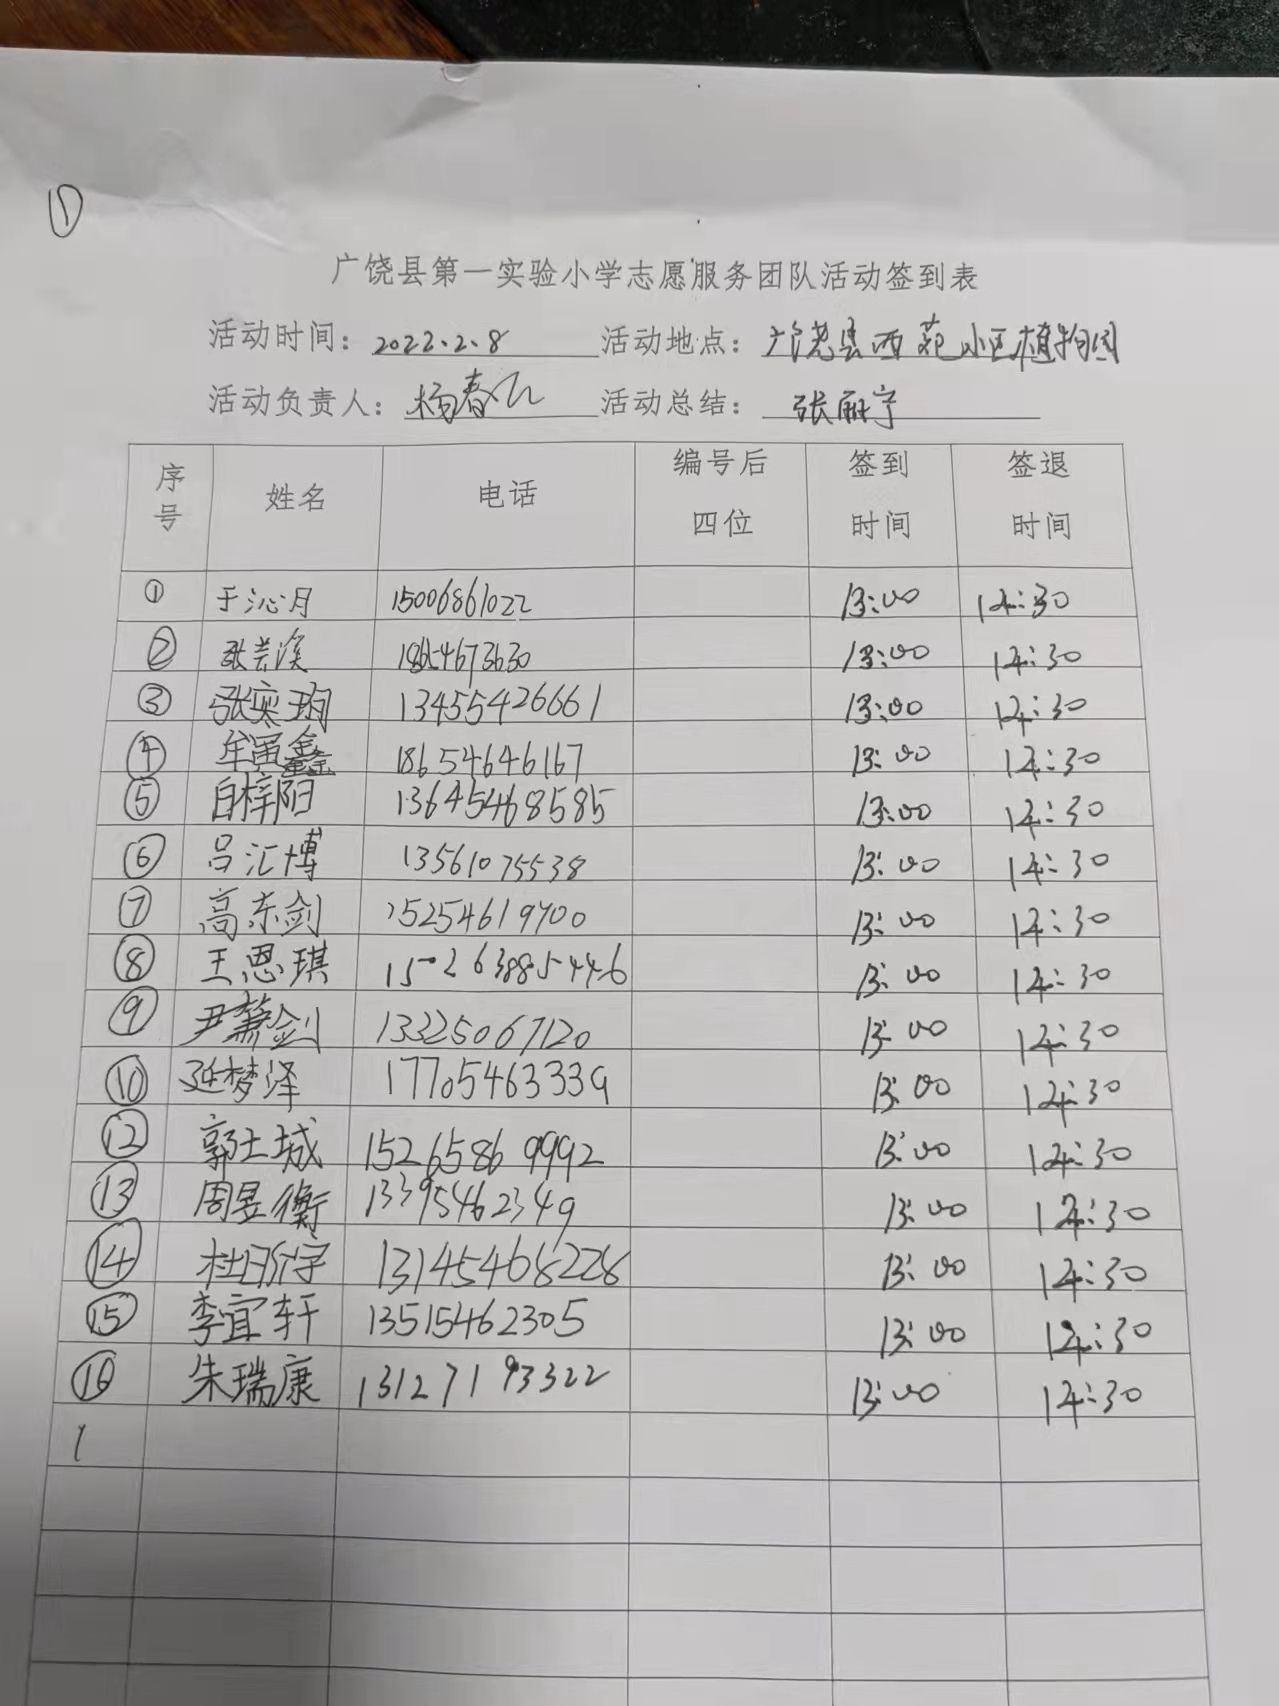 ①
广饶县第一实验小学志愿服务团队活动签到表
活动时间：2022.2.8 活动地点：广饶县西苑小区植物园
活动负责人：杨春 活动总结：张丽宁
序号 姓名 电话 编号后四位 签到时间 签退时间
① 于沁月 15006861022 13:00 14:30
② 张芸溪 18654673630 13:00 14:30
③ 张奕珣 13455426661 13:00 14:30
④ 牟寅鑫 18654646167 13:00 14:30
⑤ 白梓阳 13645468585 13:00 14:30
⑥ 吕汇博 13561075538 13:00 14:30
⑦ 高东剑 15254619700 13:00 14:30
⑧ 王恩琪 150263885446 13:00 14:30
⑨ 尹萧剑 13325067120 13:00 14:30
⑩ 延梦泽 17705463339 13:00 14:30
⑫ 郭士城 15265869992 13:00 14:30
⑬ 周昱衡 13395462349 13:00 14:30
⑭ 杜 13145468228 13:00 14:30
⑮ 李宜轩 13515462305 13:00 14:30
⑯ 朱瑞康 13127193322 13:00 14:30
1